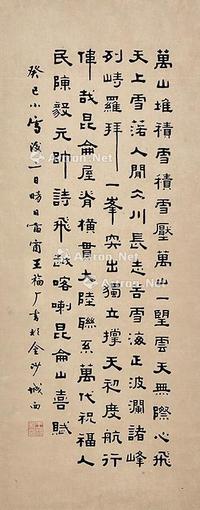 萬山堆積雪積雪壓萬山一望雲天無際心飛
天上雪落人間久川長志苦雪海正波瀾諸峰
列峙羅拜一峯突出獨立撐天初度航行
偉哉昆侖屋脊橫貫大陸聯系萬代祝福人
民陳毅元帥詩飛越喀喇昆侖山喜賦
癸巳小雪後一日晴日當窗王福厂書於金沙城西